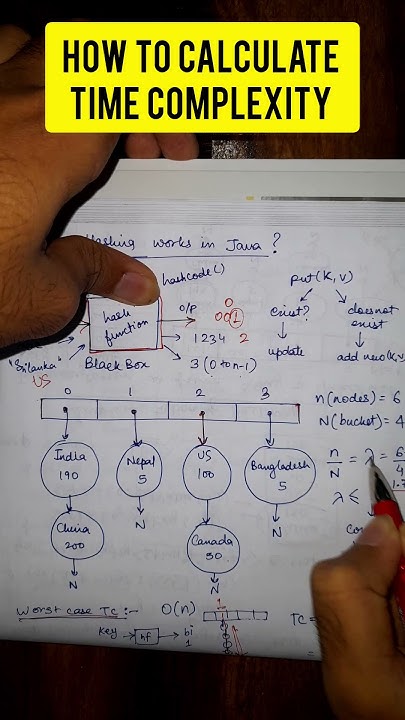 HOW TO CALCULATE
TIME COMPLEXITY
Hashing works in Java?
hashcode()
put(K,V)
hash
function
O/P
0
001
1234 2
3 (0 to n-1)
"Srilanka"
US
Black Box
exist?
does not
exist
update
add new(K,V
n(nodes) = 6
N(bucket) = 4
n/N = λ = 6/4
λ ≤
0 1 2 3
India
190
Nepal
5
US
100
Bangladesh
5
China
200
N
N
Canada
50
N
N
Worst case TC:- O(n)
TC =
key
hf
bi
1